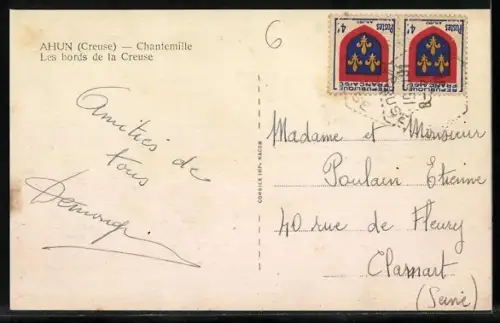 AHUN (Creuse) — Chantemille
Les bords de la Creuse
6
4F Postes
ANJOU
RÉPUBLIQUE
FRANÇAISE
4F Postes
ANJOU
RÉPUBLIQUE
FRANÇAISE
Amitiés de
tous
COMBIER IMP. MACON
Madame et Monsieur
Poulain Etienne
40 rue de Fleury
Clamart
(Seine)